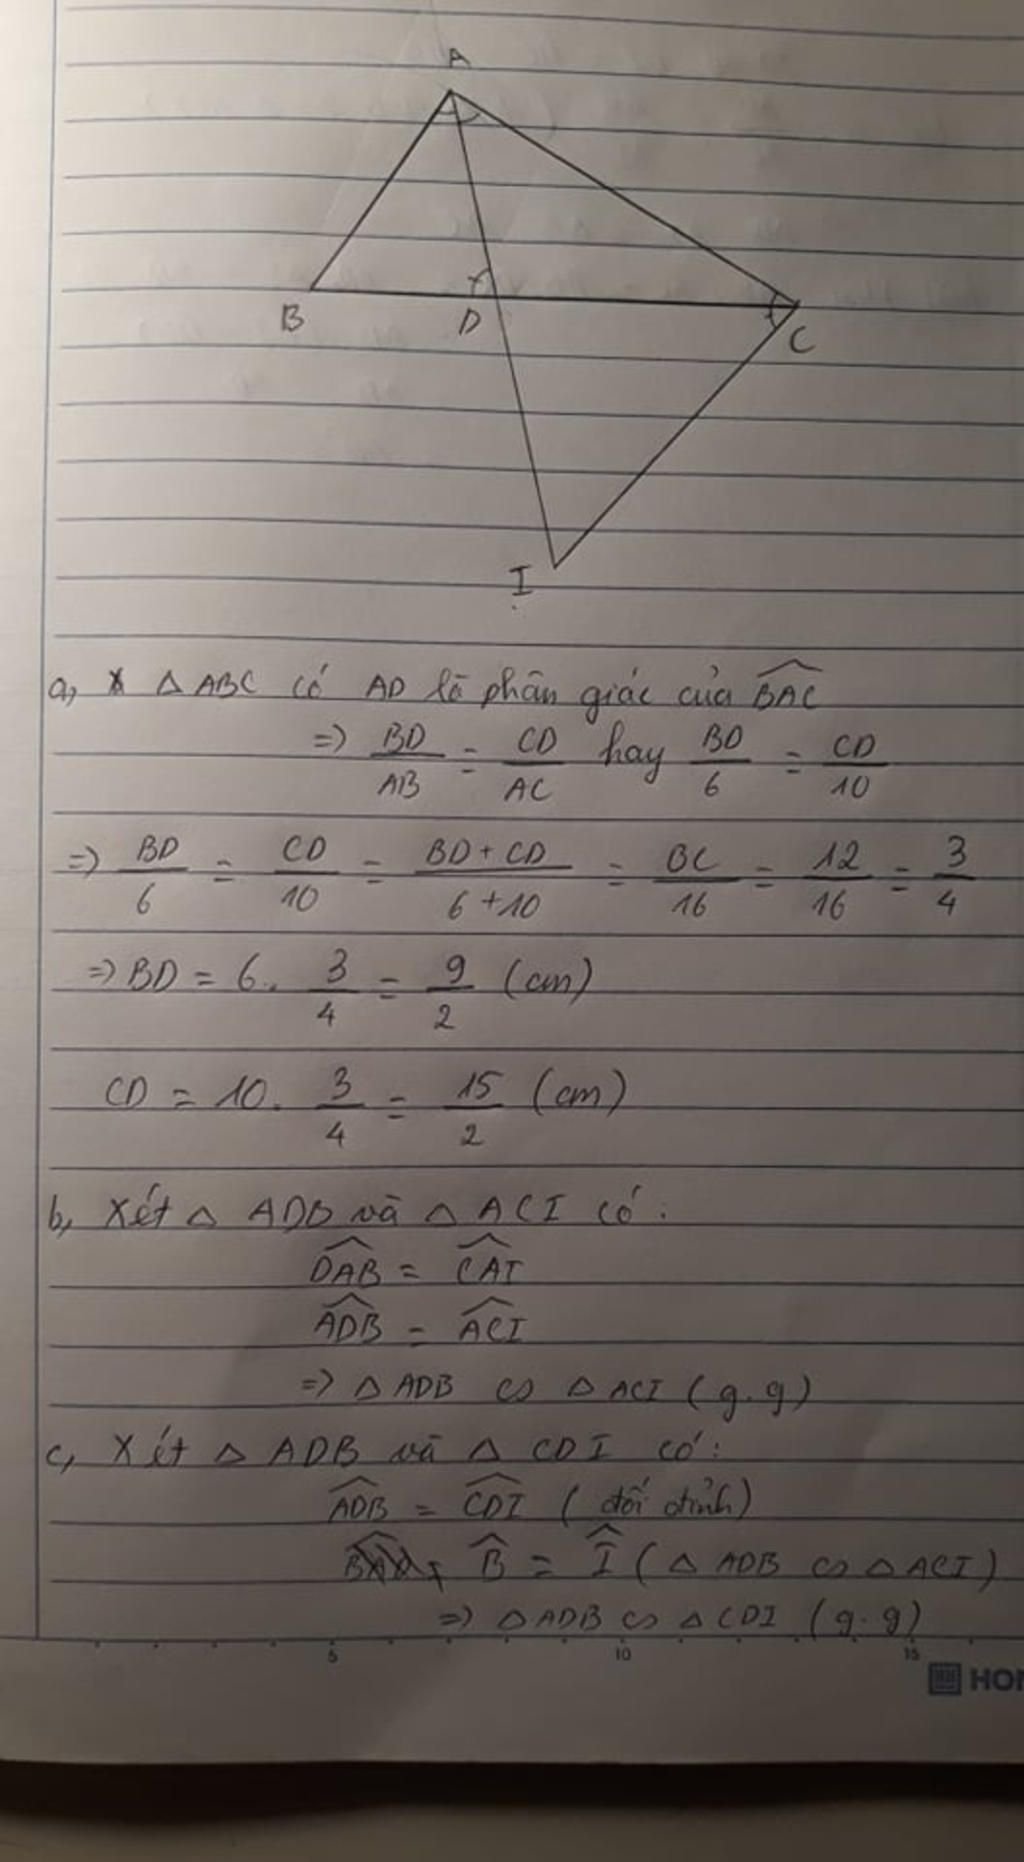 A
B
D
C
I
a, * △ ABC có AD là phân giác của \widehat{BAC}
=> BD/AB = CD/AC hay BD/6 = CD/10
=> BD/6 = CD/10 = BD + CD/6 + 10 = BC/16 = 12/16 = 3/4
=> BD = 6 . 3/4 = 9/2 (cm)
CD = 10 . 3/4 = 15/2 (cm)
b, Xét △ ADB và △ ACI có :
\widehat{DAB} = \widehat{CAI}
\widehat{ADB} = \widehat{ACI}
=> △ ADB ∽ △ ACI (g.g)
c, Xét △ ADB và △ CDI có :
\widehat{ADB} = \widehat{CDI} (đối đỉnh)
\widehat{B} = \widehat{I} (△ ADB ∽ △ ACI)
=> △ ADB ∽ △ CDI (g.g)
5 10 15
HON